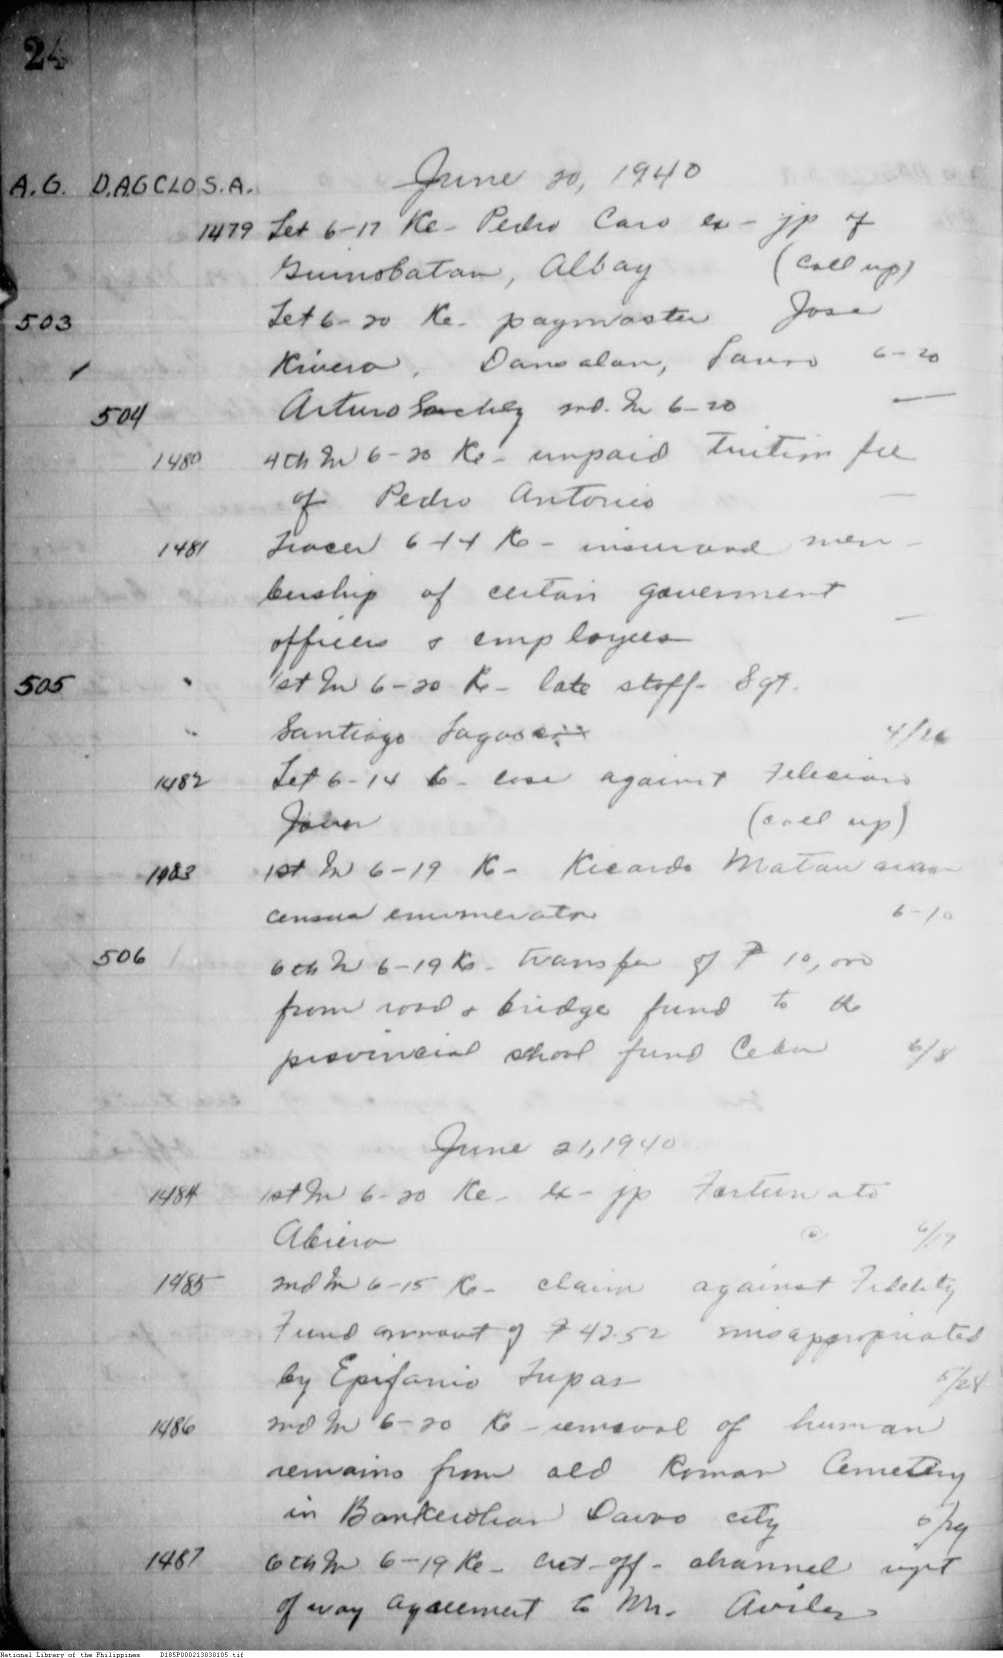 24
June 20, 1940
A.G. D.A.G CLO S.A.
1479 Let 6-17 Re- Pedro Caro ex-jp of
Guinobatan, Albay (call up)
503 Let 6-20 Re- paymaster Jose
Rivera, Dansalan, Lanao 6-20
504 Arturo Sanchez 2nd. In 6-20 —
1480 4th In 6-20 Re- unpaid tuition fee
of Pedro Antonio —
1481 Tracer 6-14 Re- insurance mem-
bership of certain government
officers & employees —
505 1st In 6-20 Re- late staff Sgt.
Santiago 4/26
1482 Let 6-14 Re- case against Feliciano
Jover (call up)
1483 1st In 6-19 Re- Ricardo
census enumerator 6-10
506 6th In 6-19 Re- transfer of ₱ 10,000
from road & bridge fund to the
provincial school fund Cebu 6/8
June 21, 1940
1484 1st In 6-20 Re- ex-jp Fortunato
Abiera 6/19
1485 2nd In 6-15 Re- claim against Fidelity
Fund amount of ₱42.52 misappropriated
by Epifanio Tupas 5/28
1486 2nd In 6-20 Re- removal of human
remains from old Roman Cemetery
in Bankerohan Davao city 5/29
1487 6th In 6-19 Re- cut-off-channel right
of way agreement to Mr. Aviles
National Library of the Philippines D185P000213838105.tif